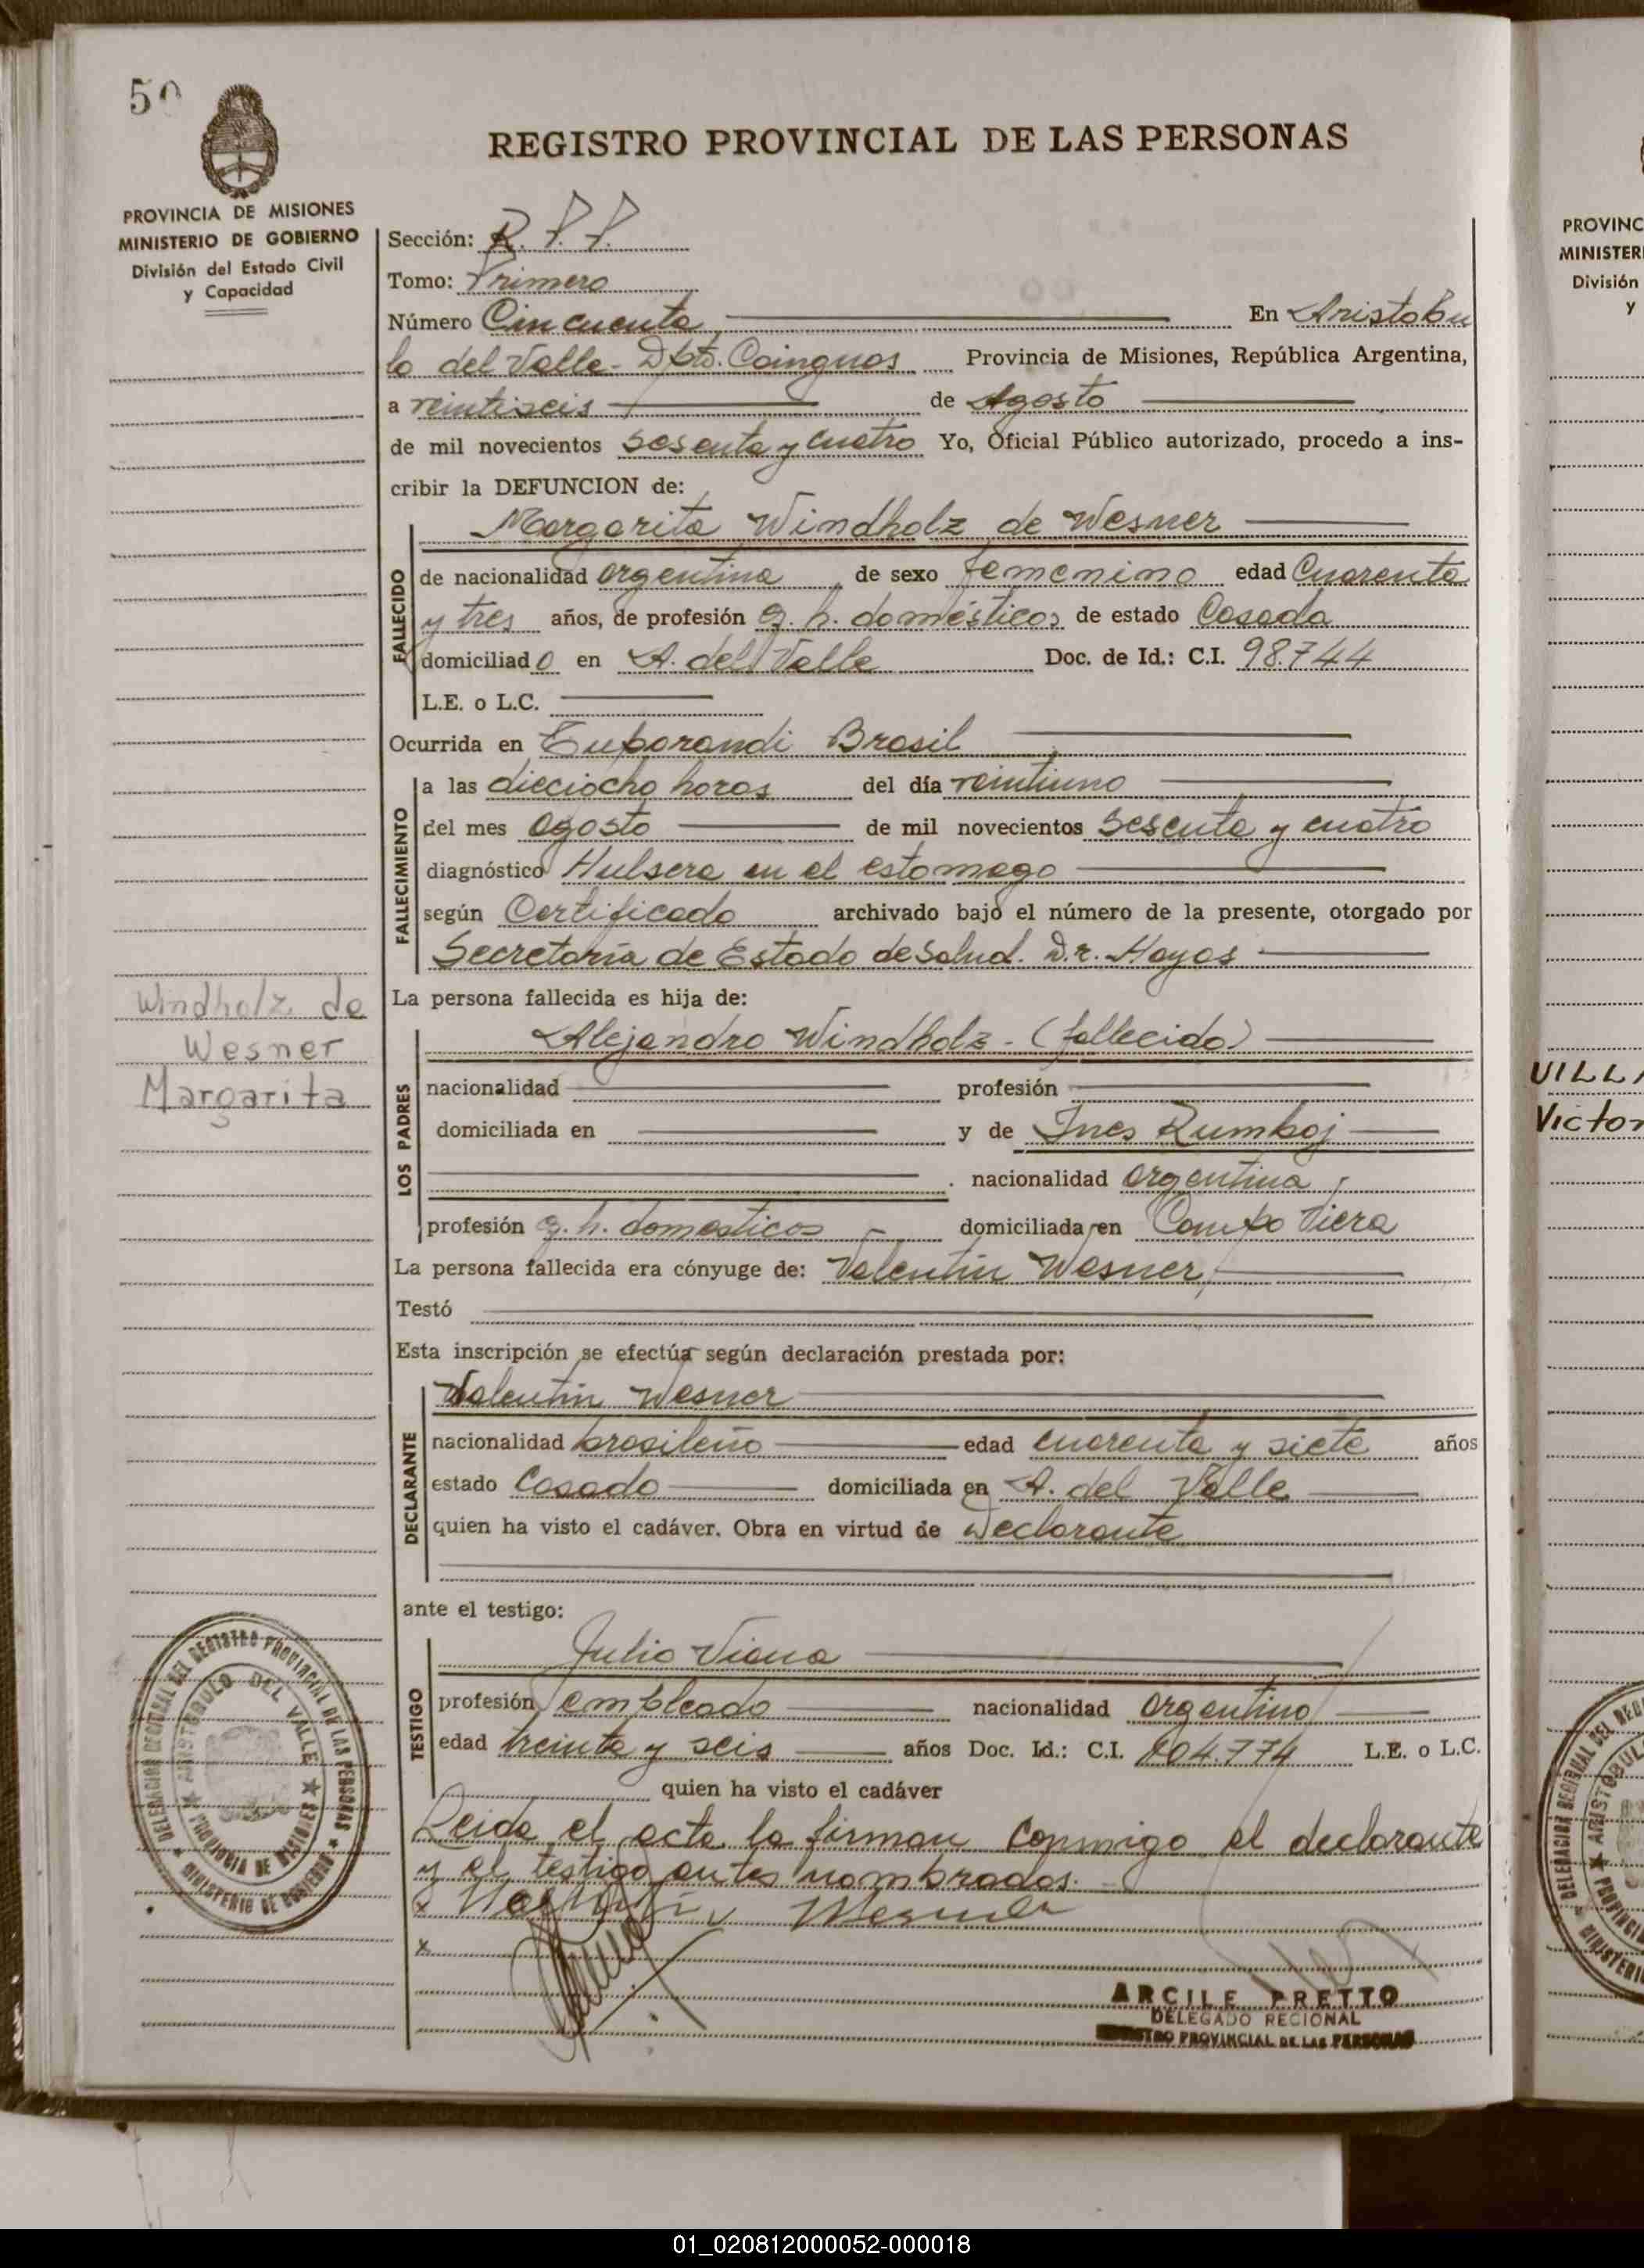 50
REGISTRO PROVINCIAL DE LAS PERSONAS
PROVINCIA DE MISIONES
MINISTERIO DE GOBIERNO
División del Estado Civil
y Capacidad
Sección: R.P.P.
Tomo: Primero
Número Cincuenta En Aristobu
lo del Valle - Dpto. Cainguas Provincia de Misiones, República Argentina,
a veintiseis de Agosto
de mil novecientos sesenta y cuatro Yo, Oficial Público autorizado, procedo a ins-
cribir la DEFUNCION de:
Margarita Windholz de Wesner
FALLECIDO
de nacionalidad argentina de sexo femenino edad Cuarenta
y tres años, de profesión q. h. domésticos de estado Casada
domiciliado en A. del Valle Doc. de Id.: C.I. 98.744
L.E. o L.C.
Ocurrida en Tuparandi Brasil
FALLECIMIENTO
a las dieciocho horas del día veintiuno
del mes agosto de mil novecientos sesenta y cuatro
diagnóstico Hulsera en el estomago
según Certificado archivado bajo el número de la presente, otorgado por
Secretaría de Estado de Salud. D.r. Hoyos
Windholz de
Wesner
Margarita
La persona fallecida es hija de:
LOS PADRES
Alejandro Windholz - (fallecido)
nacionalidad profesión
domiciliada en y de Ines
nacionalidad argentina
profesión q. h. domesticos - domiciliada en Campo Viera
La persona fallecida era cónyuge de: Valentin Wesner
Testó
Esta inscripción se efectúa según declaración prestada por:
DECLARANTE
Valentin Wesner
nacionalidad brasileño edad cuarenta y siete años
estado Casado domiciliada en A. del Valle
quien ha visto el cadáver. Obra en virtud de Declarante
ante el testigo:
TESTIGO
Julio Viana
profesión empleado nacionalidad argentino
edad treinta y seis años Doc. Id.: C.I. 104.774 L.E. o L.C.
quien ha visto el cadáver
Leida el acta la firman conmigo el declarante
y el testigo antes nombrados.
x Walentin Wesner
x
ARCILE PRETTO
DELEGADO REGIONAL
REGISTRO PROVINCIAL DE LAS PERSONAS
DELEGACION REGIONAL DEL REGISTRO PROVINCIAL DE LAS PERSONAS ★ MINISTERIO DE GOBIERNO ★
★ ARISTOBULO DEL VALLE ★ PROVINCIA DE MISIONES
PROVINC
MINISTER
División
y
VILLA
Victor
01_020812000052-000018